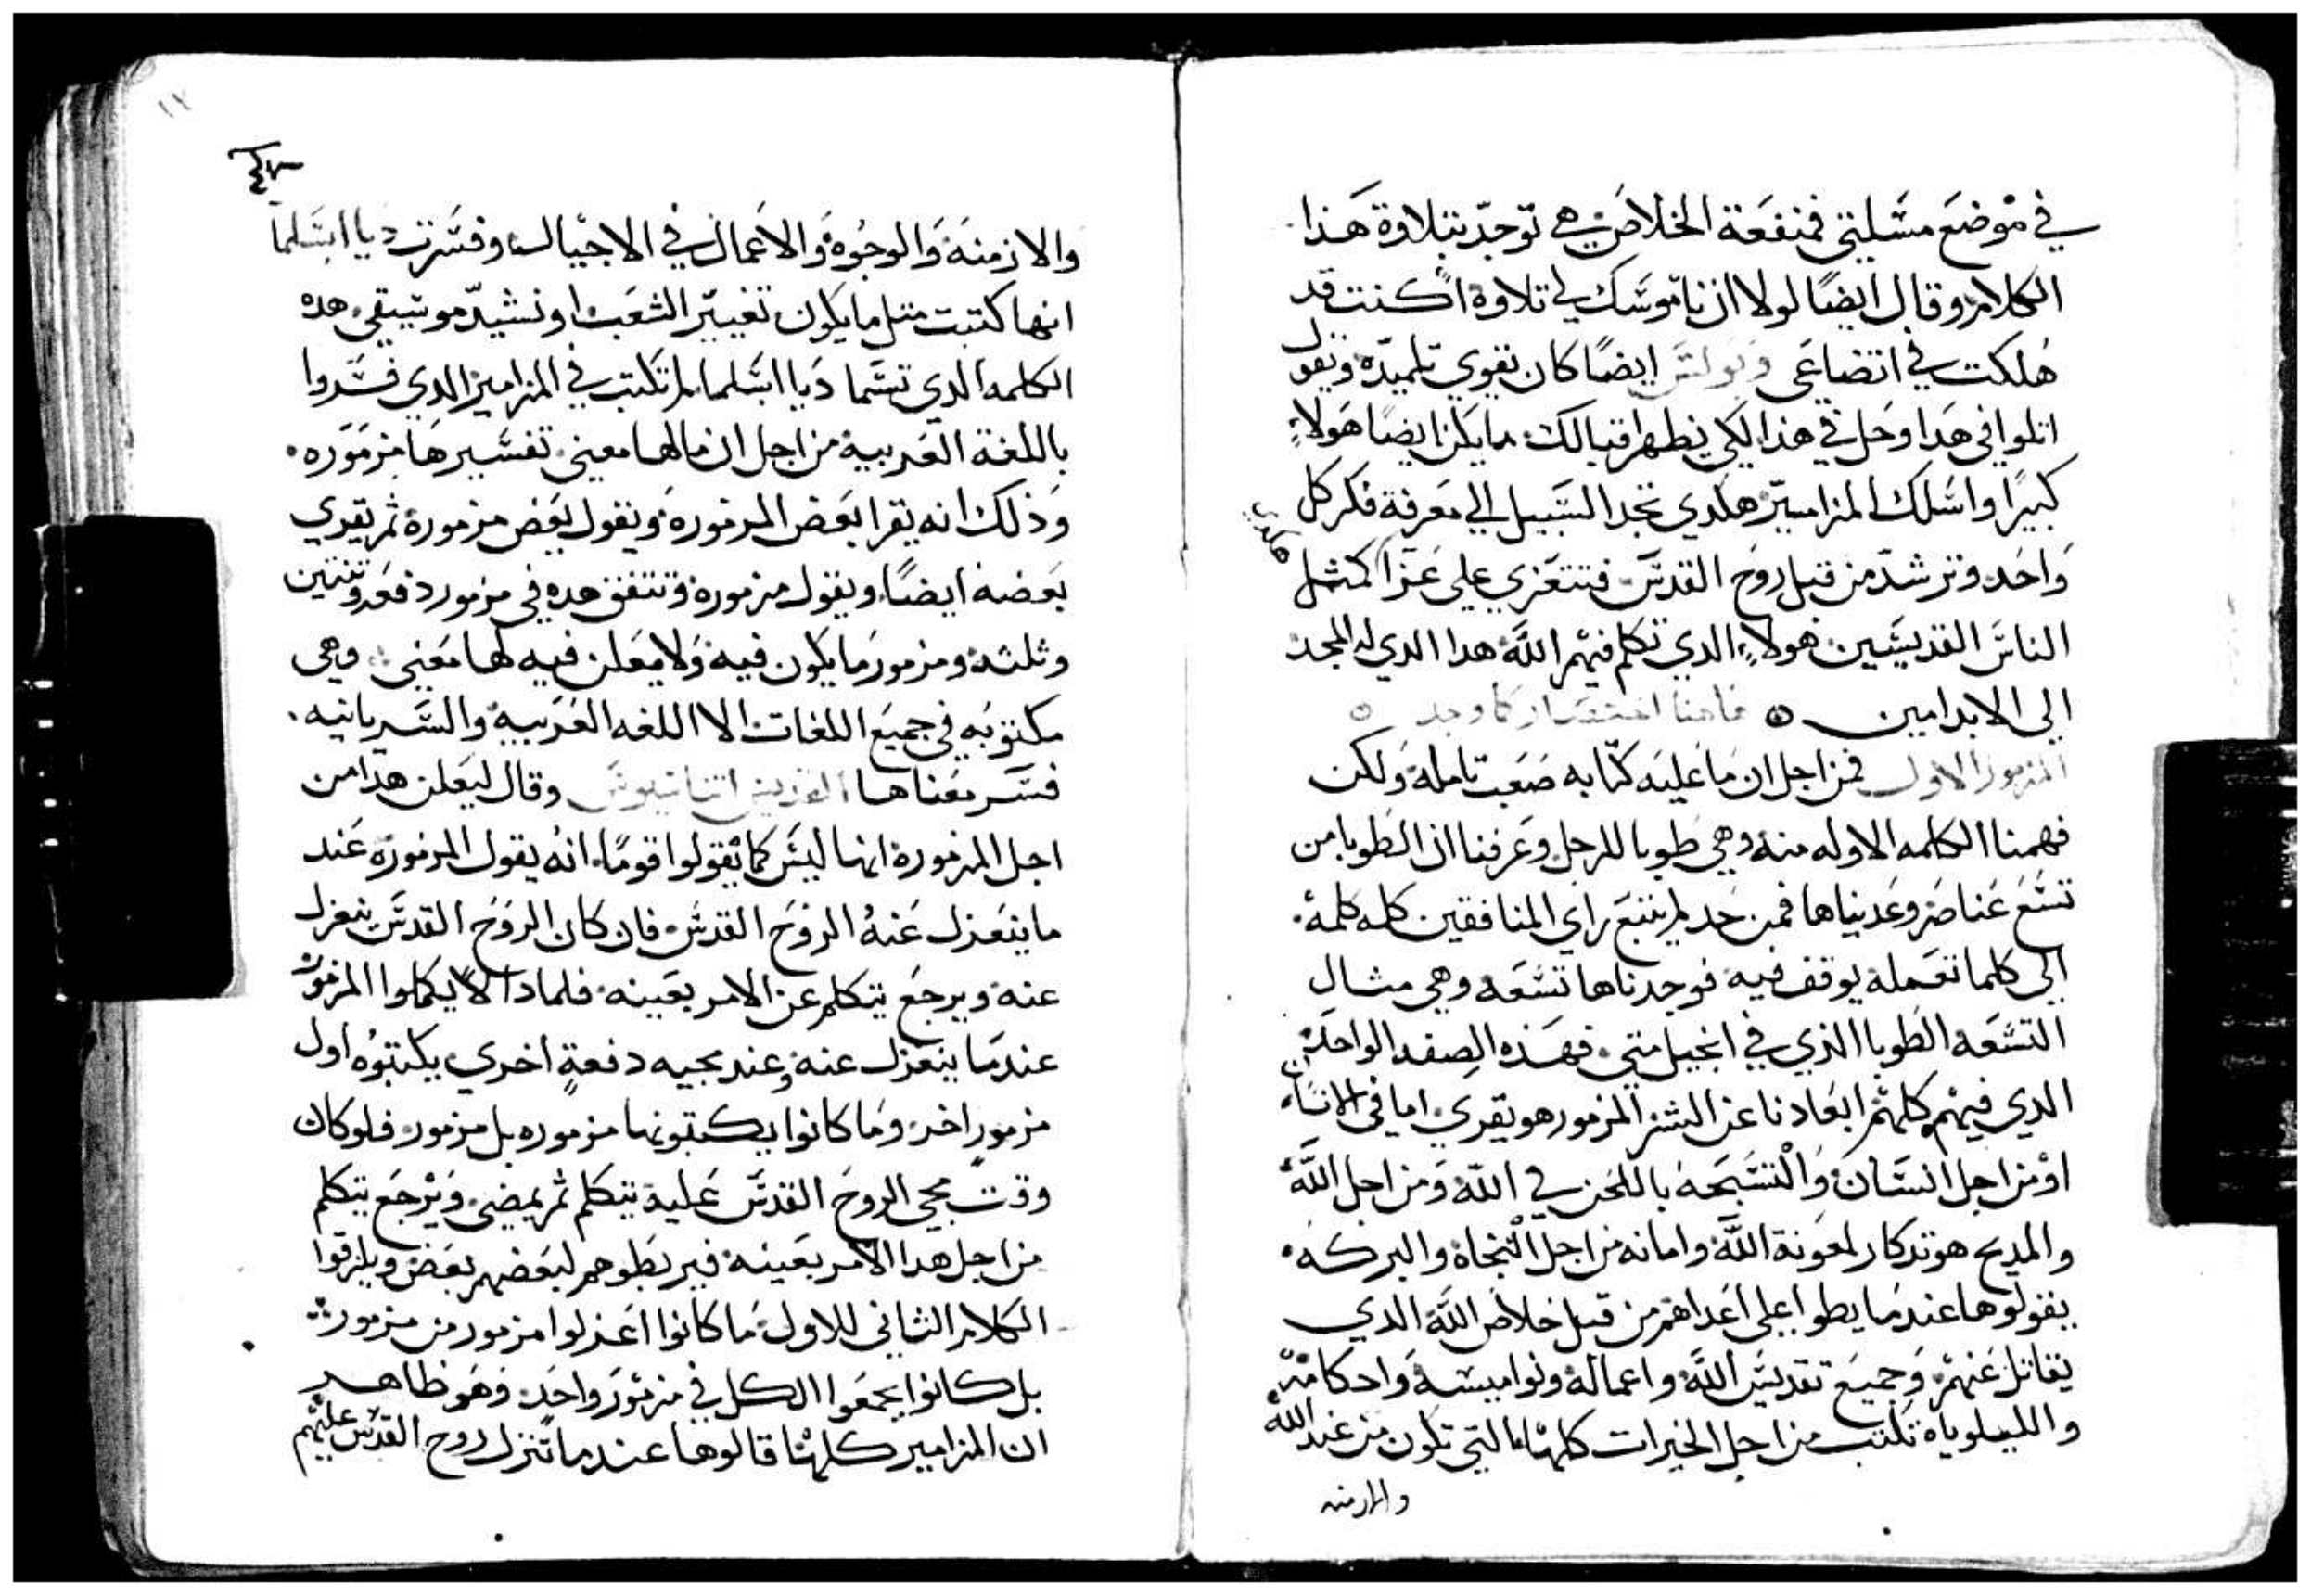 في موضع مسلتي فمنفعة الخلاص هي توجد بتلاوة هذا
الكلام وقال ايضًا لولا ان ناموسك لي تلاوة اكنت قد
هلكت في اتضاعي وبولس ايضًا كان يقوي تلميده ويقول
اتلوا في هدا وحل في هذا لكي يظهر اقبالك ما يكن ايضا هولاءِ
كبيرًا واسلك المزامير هلدي تجد السبيل الي معرفة فكر كل
واحد وترشد من قبل روح القدس فتتعزي علي عزا كمثل
الناس القديسين هولاءِ الدي تكلم فيهم الله هدا الدي له المجد
الي الابد امين هاهنا اختصار كما وجد
المزمور الاول فمن اجل ان ما عليه كتابه صعب تامله ولكن
فهمنا الكلمه الاوله منه وهي طوبا للرجل وعرفنا ان الطوبا من
تسع عناصر وعديناها فمن حد لم يتبع راي المنافقين كله كلمة
الي كلما تعمله يوقف فيه فوجدناها تسعه وهي مثال
التسعه الطوبا الذي في انجيل متي فهذه الصفه الواحده
الدي فيهم كلهم ابعادنا عن الشر المزمور هو يقري اما في الانسان
او من اجل انسان والتسبحه باللحن في الله ومن اجل الله
والمديح هو تدكار لمعونة الله وامانه من اجل النجاة والبركه
يقولوها عندما يطوا علي اعداهم من قبل خلاص الله الدي
يقاتل عنهم وجميع تقديس الله واعماله ونواميسه واحكامه
والليلوياه تكتب من اجل الخيرات كلها التي تكون من عند الله
والازمنه
والازمنه والوجوه والاعمال في الاجيال وفسرت ديا ابسلما
انها كتبت متل ما يكون تغيير الشعب او نشيد موسيقي هده
الكلمه الدي تسما ديا ابسلما لم تكتب في المزامير الدي فسروا
باللغة العربية من اجل ان ما لها معني تفسيرها مزموره
وذلك انه يقرا بعض المزموره ويقول بعض مزمورة ثم يقري
بعضه ايضًا ويقول مزمورة وتتفق هده في مزمور دفعه وتنتين
وثلثه ومزمور ما يكون فيه ولا معلن فيه لها معني وهي
مكتوبه في جميع اللغات الا اللغه العربيه والسريانيه
فسر معناها القديس اتناسيوس وقال ليعلن هدا من
اجل المزمورة انها ليس كما يقولوا قومًا انه يقول المزموره عند
ما ينعزل عنه الروح القدس فان كان الروح القدس ينعزل
عنه ويرجع يتكلم عن الامر بعينه فلمادا لا يكملوا المزمور
عندما ينعزل عنه وعند مجيه دفعةٍ اخري يكتبوه اول
مزمورٍ اخر وما كانوا يكتبونها مزموره بل مزمور فلو كان
وقت مجي الروح القدس عليه يتكلم ثم يمضي ويرجع يتكلم
من اجل هدا الامر بعينه فيربطوهم لبعضهم بعض ويلزقوا
الكلام الثاني للاول ما كانوا اعزلوا مزمور من مزمور
بل كانوا يجمعوا الكل في مزمور واحد وهو ظاهر
ان المزامير كلها قالوها عندما تنزل روح القدس عليهم